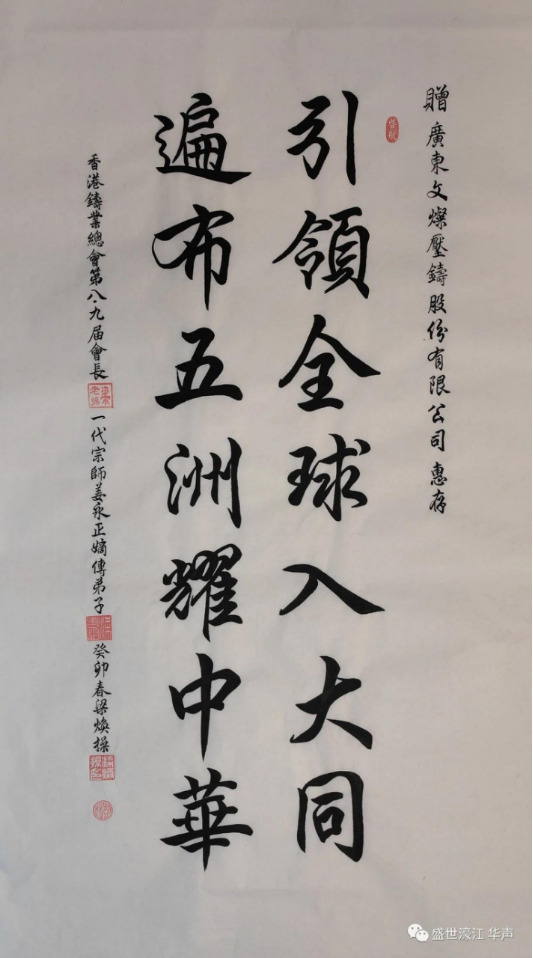 贈廣東文燦壓鑄股份有限公司惠存
引領全球入大同
遍布五洲耀中華
香港鑄業總會第八九屆會長
一代宗師姜永正嫡傳弟子
癸卯春梁煥操
盛世濠江 华声